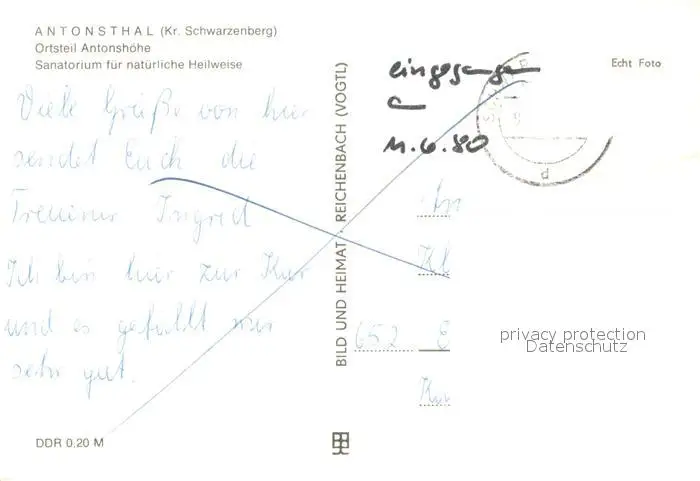 ANTONSTHAL (Kr. Schwarzenberg)
Ortsteil Antonshöhe
Sanatorium für natürliche Heilweise
Viele Grüße von hier
sendet Euch die
Ingrid
Ich bin hier zur Kur
und es gefällt mir
sehr gut.
DDR 0,20 M
BILD UND HEIMAT REICHENBACH (VOGTL)
eingegangen
11.6.80
Echt Foto
d
An
Kl
652 E
privacy protection
Datenschutz